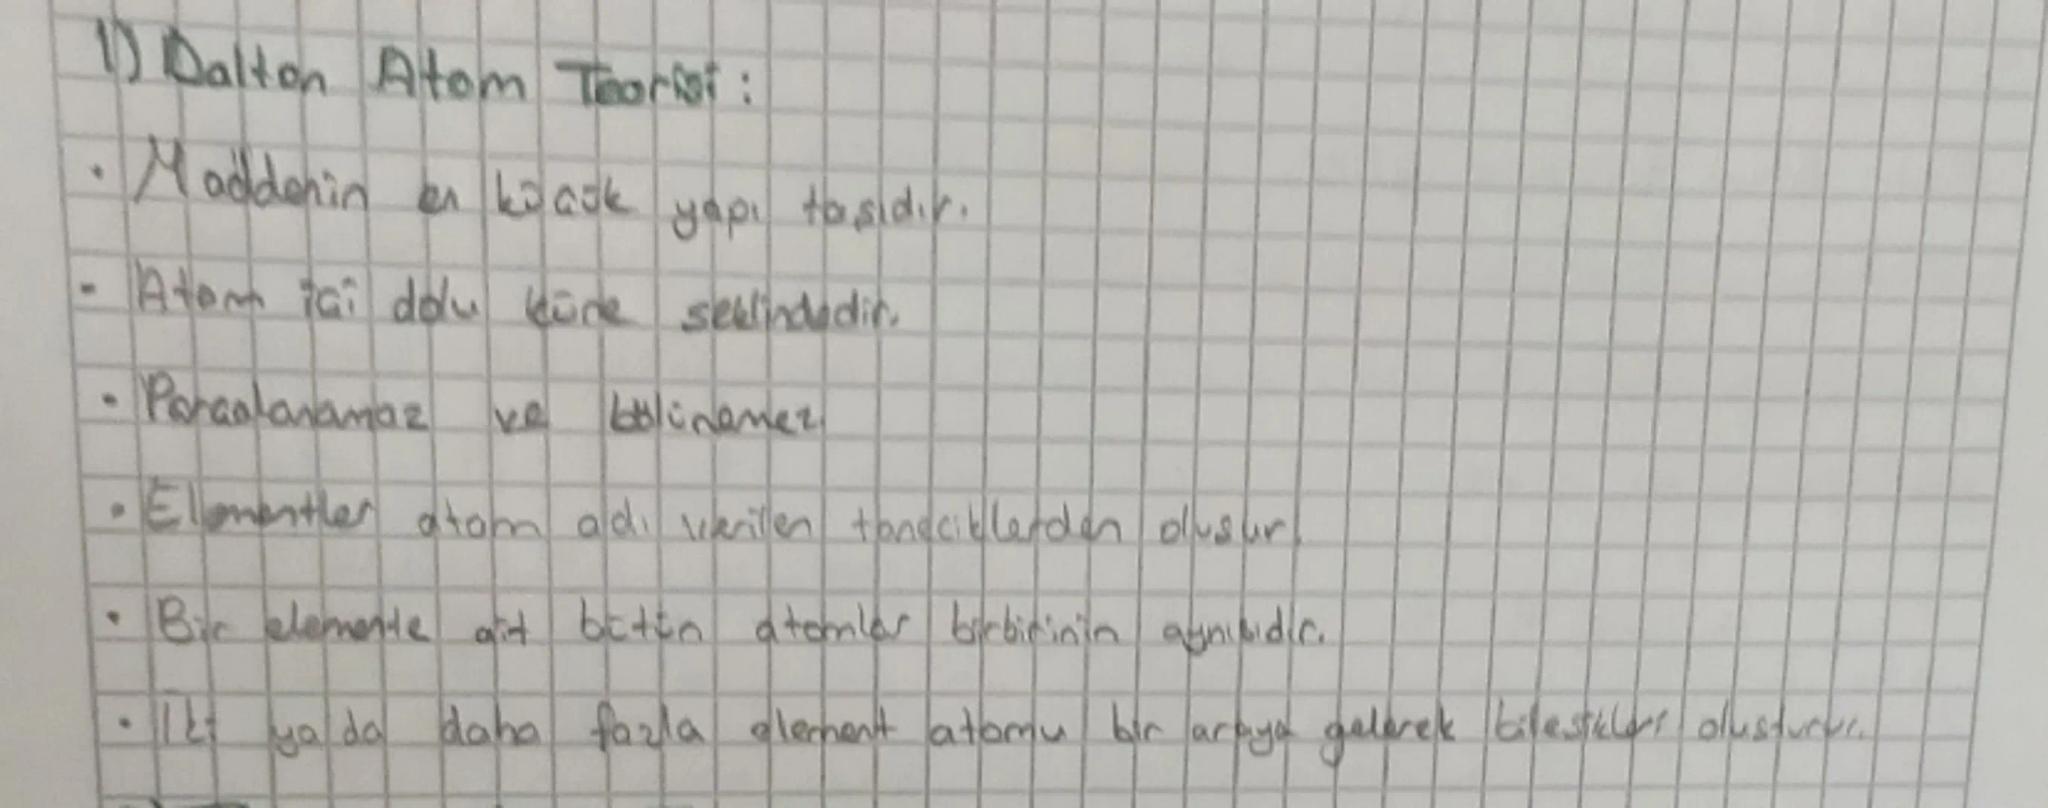 1) Dalton Atom Teorisi:
· Maddenin en küçük yapı taşıdır.
- Atom içi dolu küre şeklindedir.
· Parçalanamaz ve bölünemez
· Elementler atom adı verilen taneciklerden oluşur
· Bir elemente ait bütün atomlar birbirinin aynısıdır.
· İki ya da daha fazla element atomu bir araya gelerek bileşikleri oluşturur.